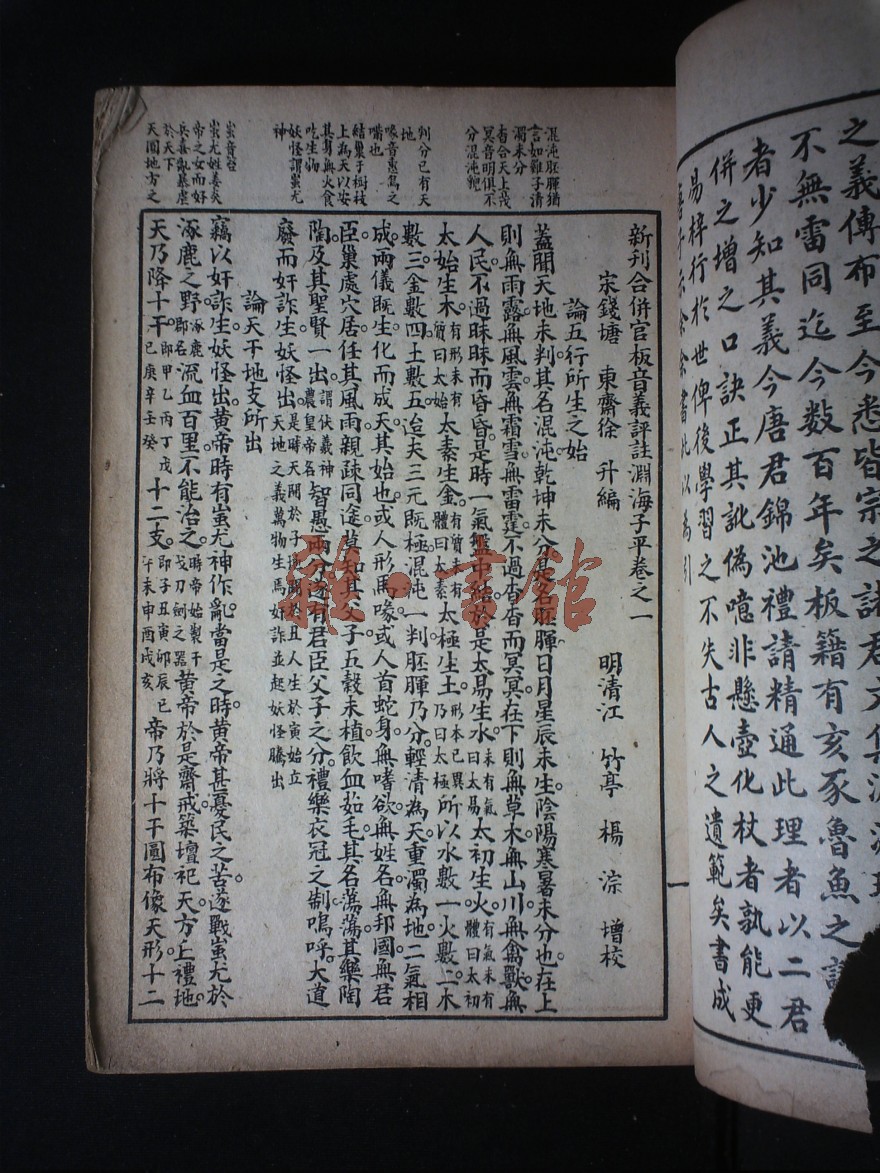 之義傳布至今悉皆宗之諸君文集淵
不無雷同迄今數百年矣板籍有亥豕魯魚之
者少知其義今唐君錦池禮請精通此理者以二君
併之增之口訣正其訛偽噫非懸壺化杖者孰能更
易梓行於世俾後學習之不失古人之遺範矣書成
此以為引
一
混沌胚腪猶
言如雞子清
濁未分
杳合天上茂
冥音明俱不
分混沌貌
判分已有天
地
喙音惠鳥之
嘴也
結巢于樹枝
上為天以安
其身無火食
吃生物
妖怪謂蚩尤
神
蚩音笞
蚩尤姓姜炎
帝之女而好
兵喜亂暴虐
於天下
天圓地方之
新刊合併官板音義評註淵海子平卷之一
宋錢塘 東齋徐 升編 明清江 竹亭 楊 淙 增校
論五行所生之始
蓋聞天地未判其名混沌乾坤未分是名胚腪日月星辰未生陰陽寒暑未分也在上
則無雨露無風雲無霜雪無雷霆不過杳杳而冥冥在下則無草木無山川無禽獸無
人民不過昧昧而昏昏是時一氣盤中結於是太易生水未有氣曰太易太初生火有氣未有體曰太初
太始生木有形未有質曰太始太素生金有質未有體曰太素太極生土形本已異乃曰太極所以水數一火數二木
數三金數四土數五迨夫三元既極混沌一判胚腪乃分輕清為天重濁為地二氣相
成兩儀既生化而成天其始也或人形馬喙或人首蛇身無嗜欲無姓名無邦國無君
臣巢處穴居任其風雨親疎同途莫知其父子五穀未植飲血茹毛其名蕩蕩其樂陶
陶及其聖賢一出謂伏羲神農皇帝名智愚兩分遂有君臣父子之分禮樂衣冠之制嗚呼大道
廢而奸詐生妖怪出是時天開於子地闢於丑人生於寅始立天地之義萬物生焉奸詐並起妖怪騰出
論天干地支所出
竊以奸詐生妖怪出黃帝時有蚩尤神作亂當是之時黃帝甚憂民之苦遂戰蚩尤於
涿鹿之野涿鹿郡名流血百里不能治之時帝始製干戈刀劍之器黃帝於是齋戒築壇祀天方丘禮地
天乃降十干即甲乙丙丁戊己庚辛壬癸十二支即子丑寅卯辰巳午未申酉戌亥帝乃將十干圓布像天形十二
雜·書館